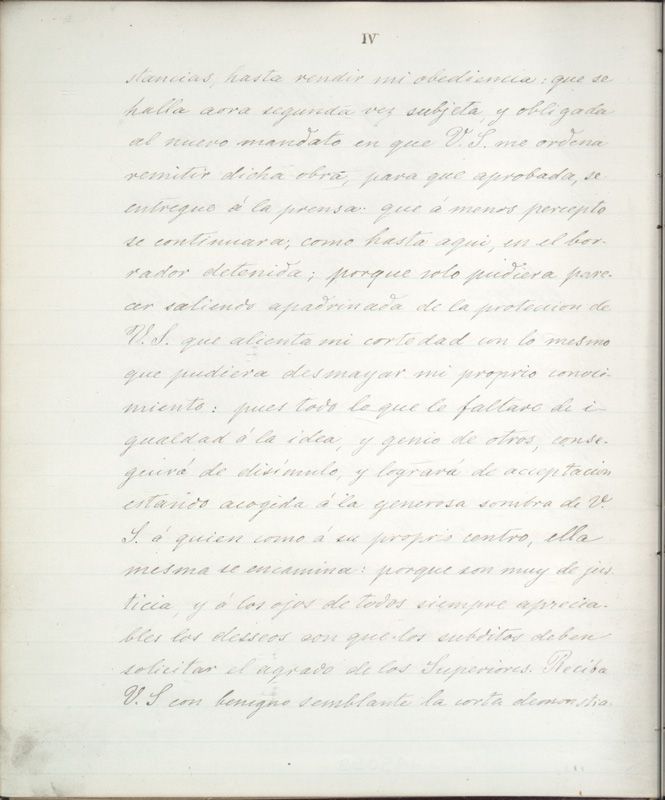 IV
stancias, hasta rendir mi obediencia: que se
halla aora segunda vez subjeta, y obligada
al nuevo mandato en que V. S. me ordena
remitir dicha obra, para que aprobada, se
entregue á la prensa: que á menos percepto
se continuara, como hasta aqui, en el bor-
rador detenida; porque solo pudiera pare-
cer saliendo apadrinada de la proteccion de
V. S. que alienta mi cortedad con lo mesmo
que pudiera desmayar mi proprio conoci-
miento: pues todo lo que le faltare de i-
gualdad á la idea, y genio de otros, conse-
guirá de disímulo, y logrará de acceptacion
estando acogida á la generosa sombra de V.
S. á quien como á su proprio centro, ella
mesma se encamina: porque son muy de jus
ticia, y á los ojos de todos siempre aprecia-
bles los desseos con que los subditos deben
solicitar el agrado de los Superiores. Reciba
V. S con benigno semblante la corta demonstra-